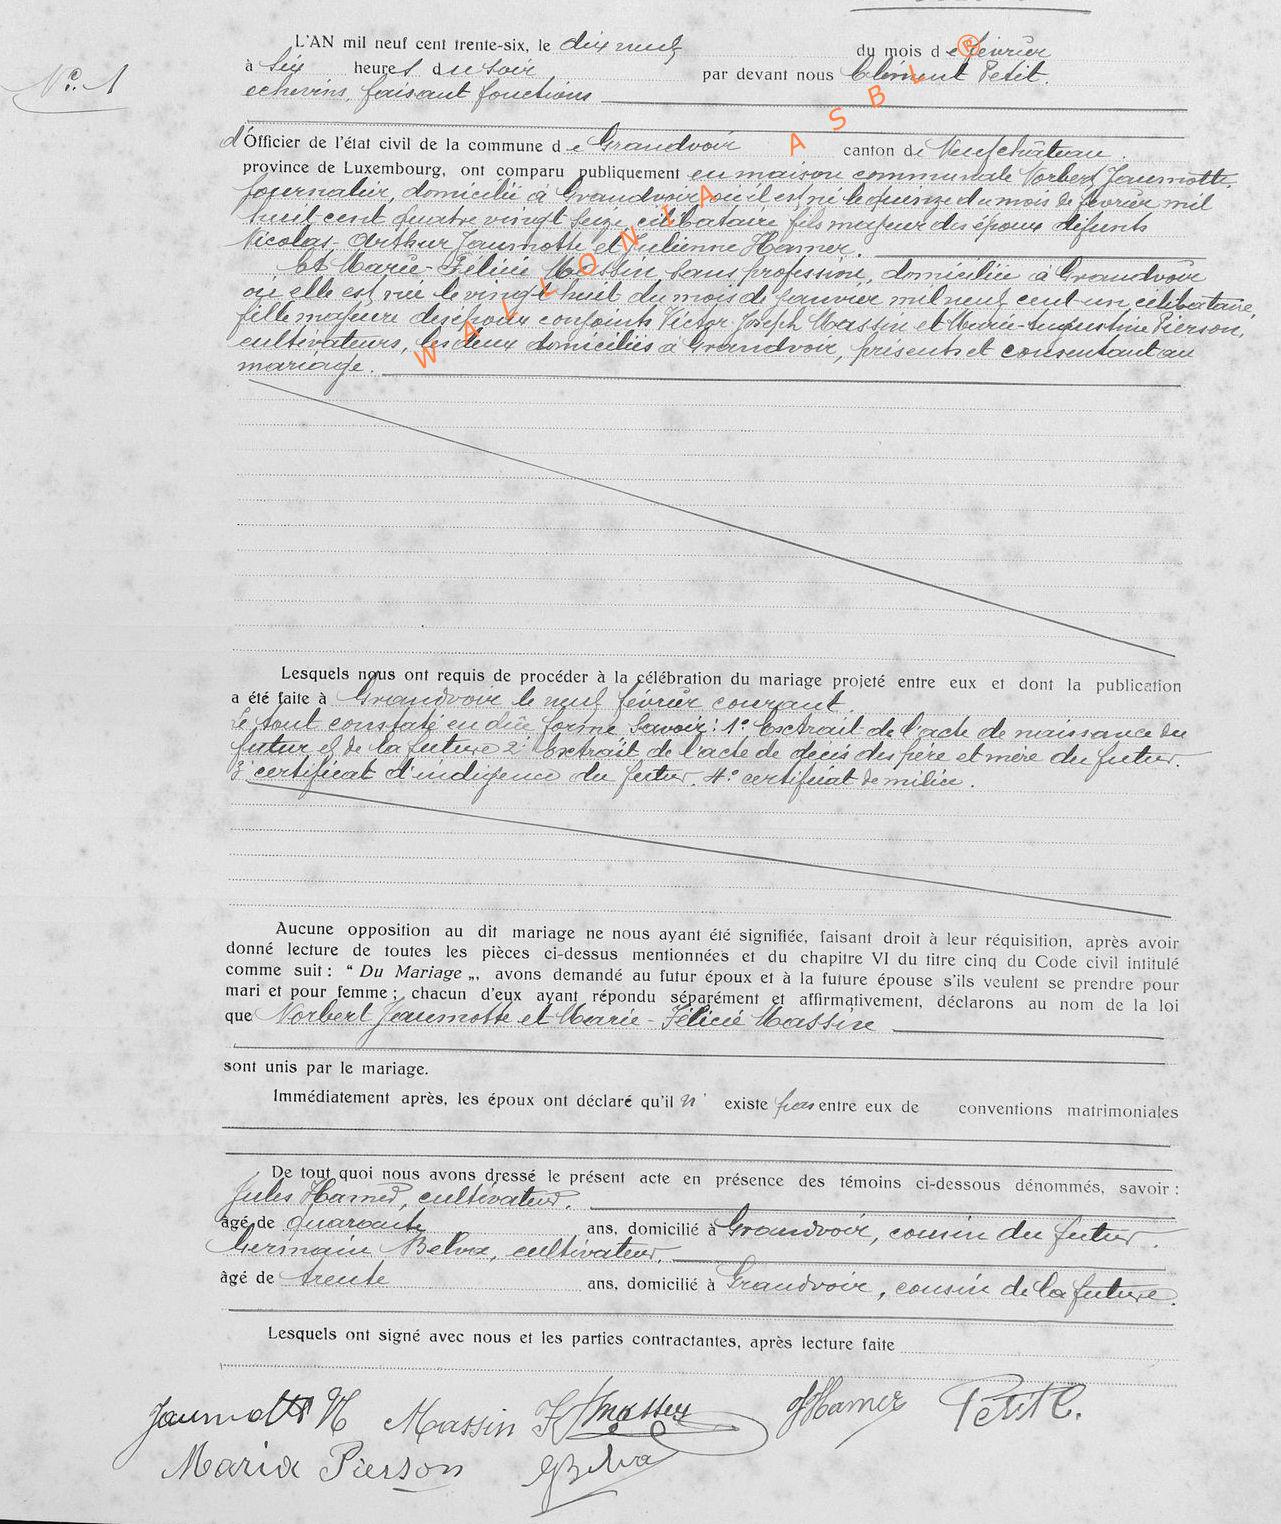 N° 1
L'AN mil neuf cent trente-six, le dix neuf du mois de février
à six heures du soir par devant nous Clément Petit.
échevins, faisant fonctions
d'Officier de l'état civil de la commune de Grandvoir canton de Neufchâteau.
province de Luxembourg, ont comparu publiquement en maison communale Norbert Jaumotte
journalier, domicilié à Grandvoir où il est né le quinze du mois de février mil
huit cent quatre vingt seize, célibataire fils majeur des époux défunts
Nicolas-Arthur Jaumotte et Julienne Hamer.
Et Marie-Félicie Massin, sans profession, domiciliée à Grandvoir
où elle est née le vingt huit du mois de janvier mil neuf cent un célibataire,
fille majeure des époux conjoints Victor Joseph Massin et Marie-Augustine Pierson,
cultivateurs, les deux domiciliés à Grandvoir, présents et consentant au
mariage.
WALLONIA ASBL ®
Lesquels nous ont requis de procéder à la célébration du mariage projeté entre eux et dont la publication
a été faite à Grandvoir le neuf février courant.
Le tout constaté en due forme Savoir : 1° Extrait de l'acte de naissance du
futur et de la future 2° Extrait de l'acte de décès des père et mère du futur.
3° certificat d'indigence du futur. 4° certificat de milice.
Aucune opposition au dit mariage ne nous ayant été signifiée, faisant droit à leur réquisition, après avoir
donné lecture de toutes les pièces ci-dessus mentionnées et du chapitre VI du titre cinq du Code civil intitulé
comme suit : “ Du Mariage „, avons demandé au futur époux et à la future épouse s'ils veulent se prendre pour
mari et pour femme ; chacun d'eux ayant répondu séparément et affirmativement, déclarons au nom de la loi
que Norbert Jaumotte et Marie-Félicie Massin
sont unis par le mariage.
Immédiatement après, les époux ont déclaré qu'il n' existe pas entre eux de conventions matrimoniales
De tout quoi nous avons dressé le présent acte en présence des témoins ci-dessous dénommés, savoir :
Jules Hamer, cultivateur.
âgé de quarante ans, domicilié à Grandvoir, cousin du futur.
Germain Belva, cultivateur,
âgé de trente ans, domicilié à Grandvoir, cousin de la future.
Lesquels ont signé avec nous et les parties contractantes, après lecture faite
Jaumotte N Massin F J Hamer Petit C.
Maria Pierson G Belva